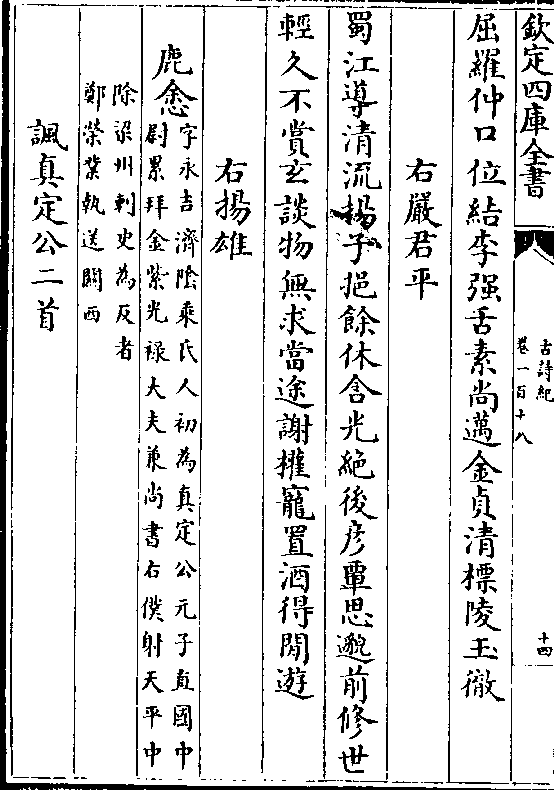 欽定四庫全書
古詩紀
卷一百十八
十四
屈羅仲口位結李强舌素尚邁金貞清標陵玉徹
右嚴君平
蜀江導清流揚子挹餘休含光絶後彦覃思邈前修世
輕久不賞玄談物無求當途謝權寵置酒得閒遊
右揚雄
鹿悆
字永吉濟隂乘氏人初為真定公元子直國中
尉累拜金紫光禄大夫兼尚書右僕射天平中
除梁州刺史為反者
鄭榮業執送闗西
諷真定公二首